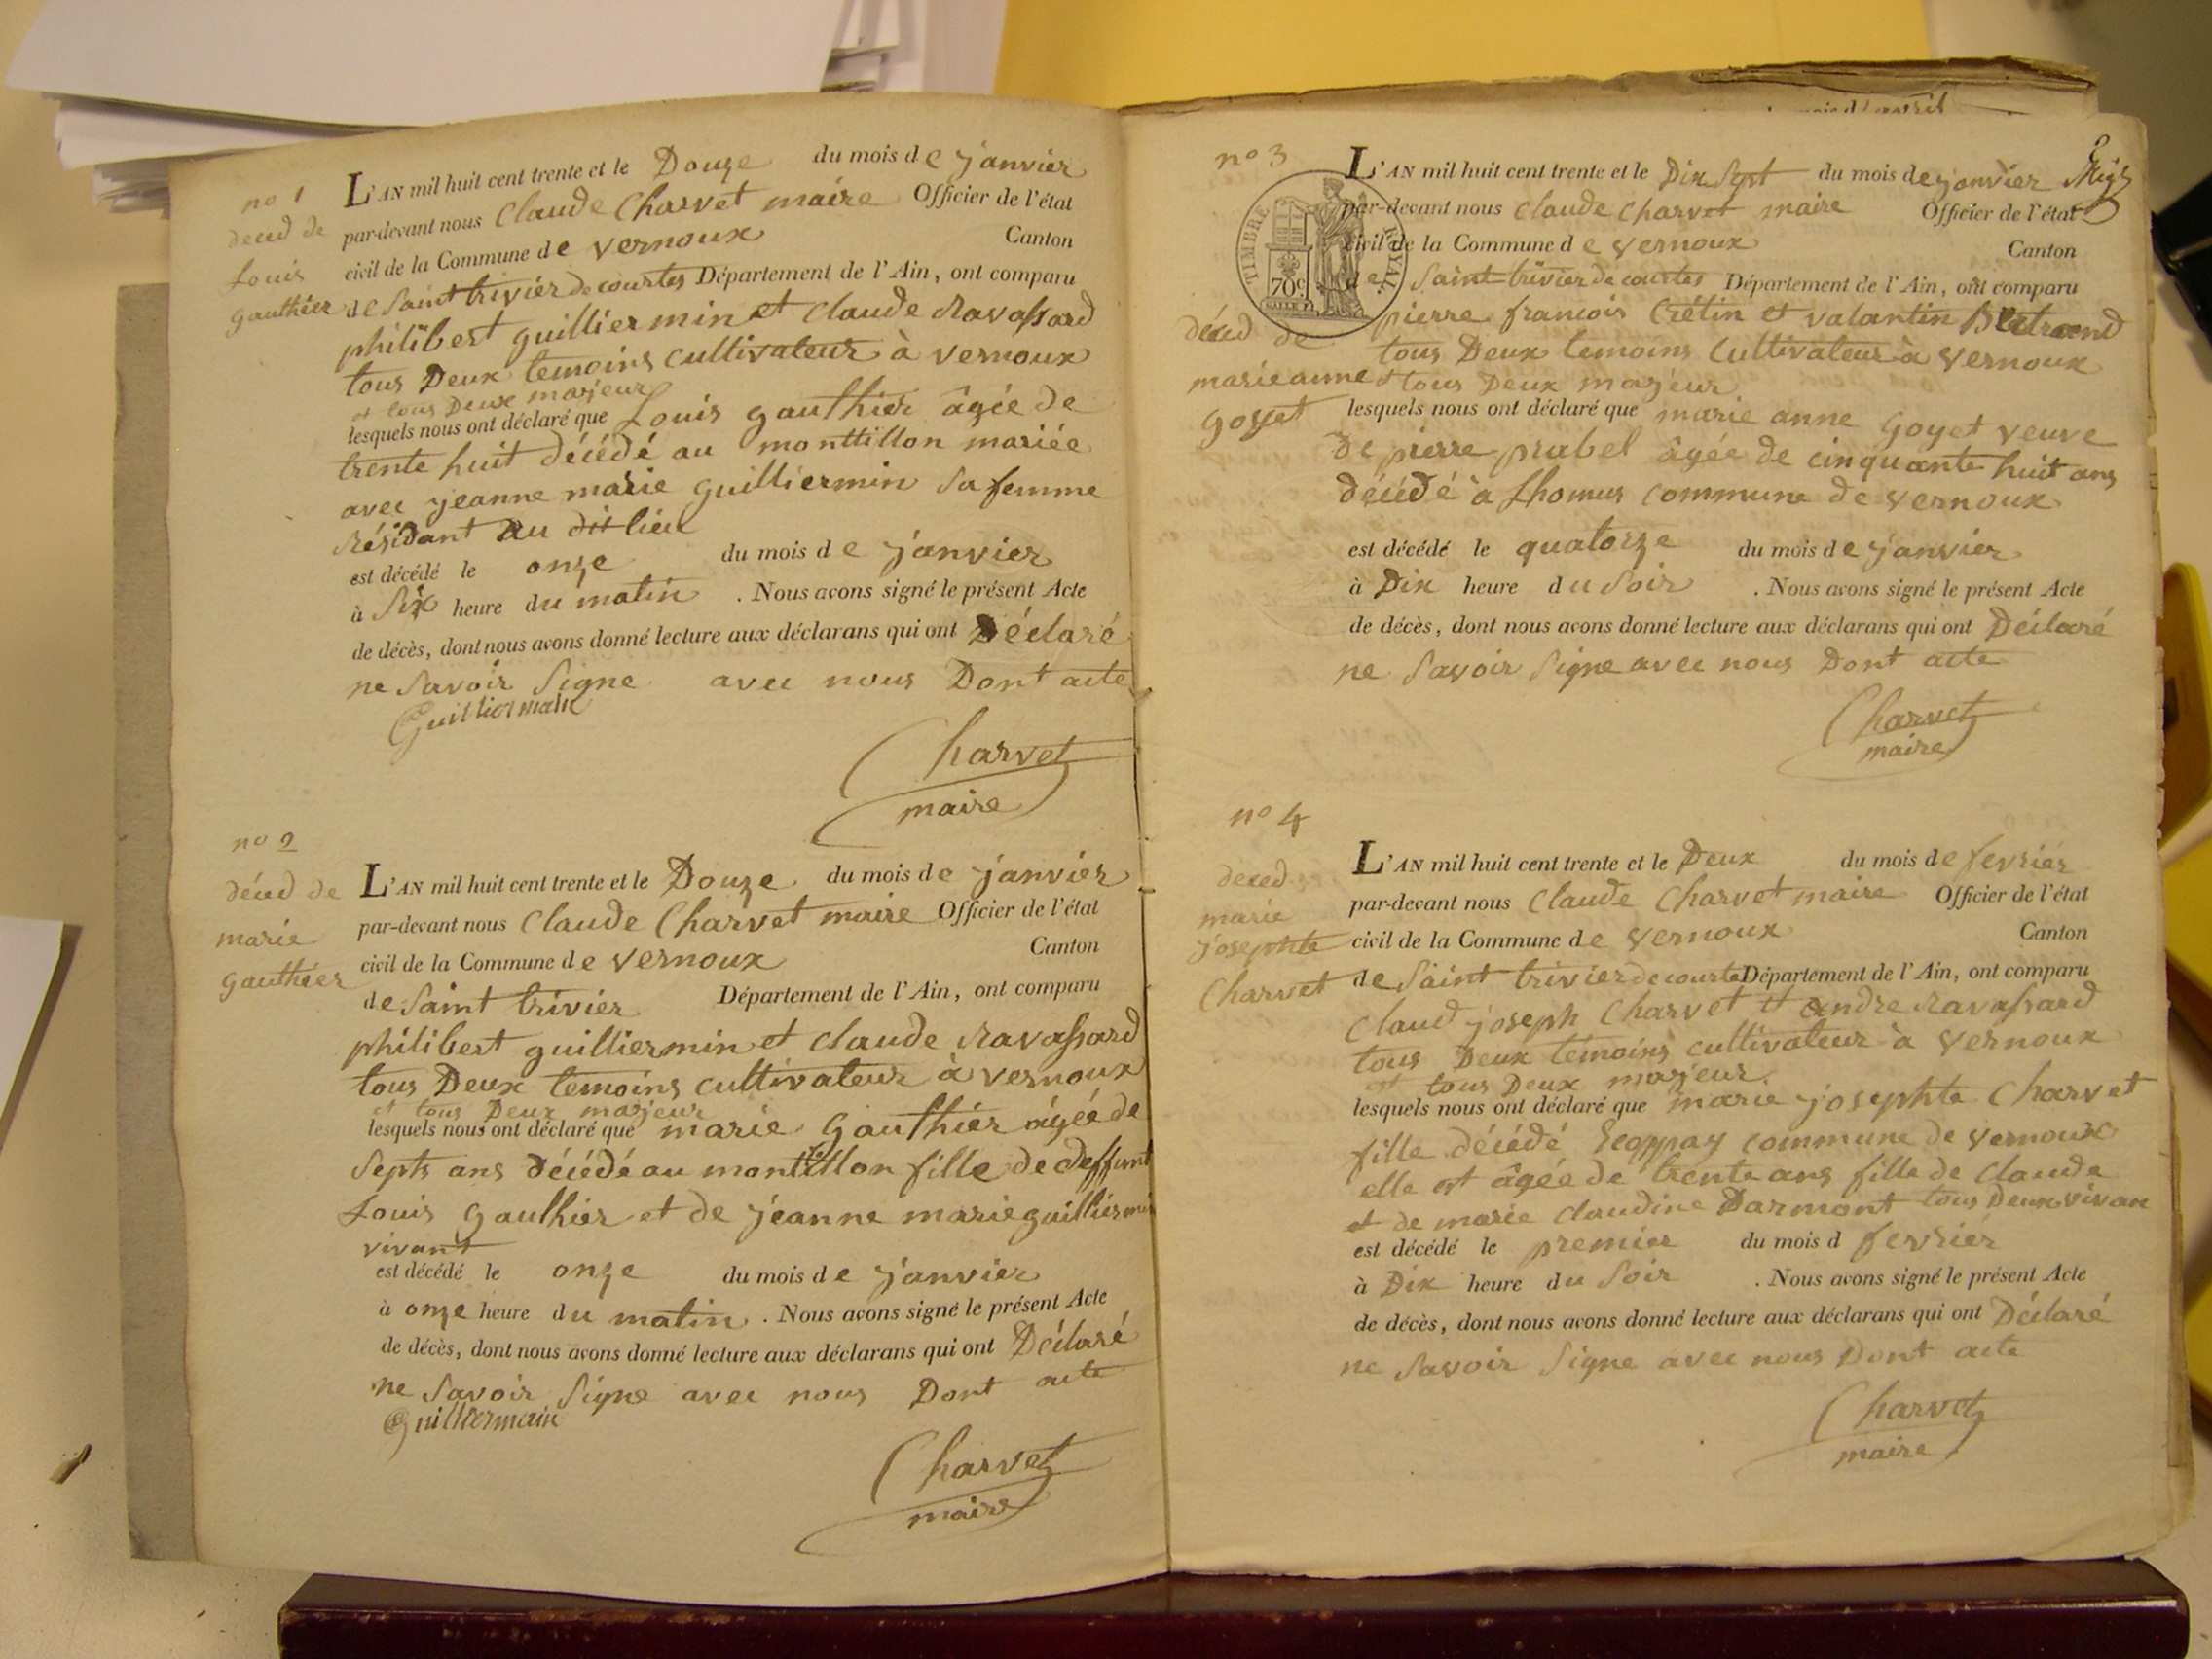 no 1
deced de
Louis
gauthier
L'AN mil huit cent trente et le Douze du mois de janvier
par-devant nous Claude Charvet maire Officier de l'état
civil de la Commune de vernoux Canton
de Saint trivier de courtes Département de l'Ain, ont comparu
philibert guilliermin et claude ravassard
tous Deux temoins cultivateur à vernoux
et tous Deux majeur
lesquels nous ont déclaré que Louis gauthier âgée de
trente huit décédé au monttillon mariée
avec jeanne marie guilliermin sa femme
résidant au dit lieu
est décédé le onze du mois de janvier
à Six heure du matin . Nous avons signé le présent Acte
de décès, dont nous avons donné lecture aux déclarans qui ont Déclaré
ne Savoir Signe avec nous Dont acte
Guilliermain
Charvet
maire
no 2
déced de
marie
gauthier
L'AN mil huit cent trente et le Douze du mois de janvier
par-devant nous Claude Charvet maire Officier de l'état
civil de la Commune de vernoux Canton
de Saint trivier Département de l'Ain, ont comparu
philibert guilliermin et claude ravassard
tous Deux temoins cultivateur à vernoux
et tous Deux majeur
lesquels nous ont déclaré que marie gauthier âgée de
Septs ans décédé au montillon fille de deffunt
Louis gauthier et de jeanne marie guilliermin
vivant
est décédé le onze du mois de janvier
à onze heure du matin . Nous avons signé le présent Acte
de décès, dont nous avons donné lecture aux déclarans qui ont Déclaré
ne Savoir Signe avec nous Dont acte
Guilliermain
Charvet
maire
no 3
TIMBRE ROYAL
70c
déced de
marie anne
goyet
L'AN mil huit cent trente et le Dix Sept du mois de janvier
par-devant nous Claude Charvet maire Officier de l'état
civil de la Commune de vernoux Canton
de Saint trivier de courtes Département de l'Ain, ont comparu
pierre francois Crétin et valantin
tous Deux temoins Cultivateur à vernoux
et tous Deux majeur
lesquels nous ont déclaré que marie anne goyet veuve
de pierre prabel âgée de cinquante huit ans
décédé à Lhomus commune de vernoux
est décédé le quatorze du mois de janvier
à Dix heure du Soir . Nous avons signé le présent Acte
de décès, dont nous avons donné lecture aux déclarans qui ont Déclaré
ne Savoir Signe avec nous Dont acte
Charvet
maire
no 4
deced
marie
josephte
Charvet
L'AN mil huit cent trente et le Deux du mois de fevrier
par-devant nous Claude Charvet maire Officier de l'état
civil de la Commune de vernoux Canton
de Saint trivier de courte Département de l'Ain, ont comparu
Claud joseph Charvet et andre ravassard
tous Deux témoins cultivateur à vernoux
et tous Deux majeur
lesquels nous ont déclaré que marie josephte Charvet
fille décédé commune de vernoux
elle et âgée de trente ans fille de claude
et de marie claudine Darmont tous Deux vivan
est décédé le premier du mois d fevrier
à Dix heure du Soir . Nous avons signé le présent Acte
de décès, dont nous avons donné lecture aux déclarans qui ont Déclaré
ne Savoir Signe avec nous Dont acte
Charvet
maire